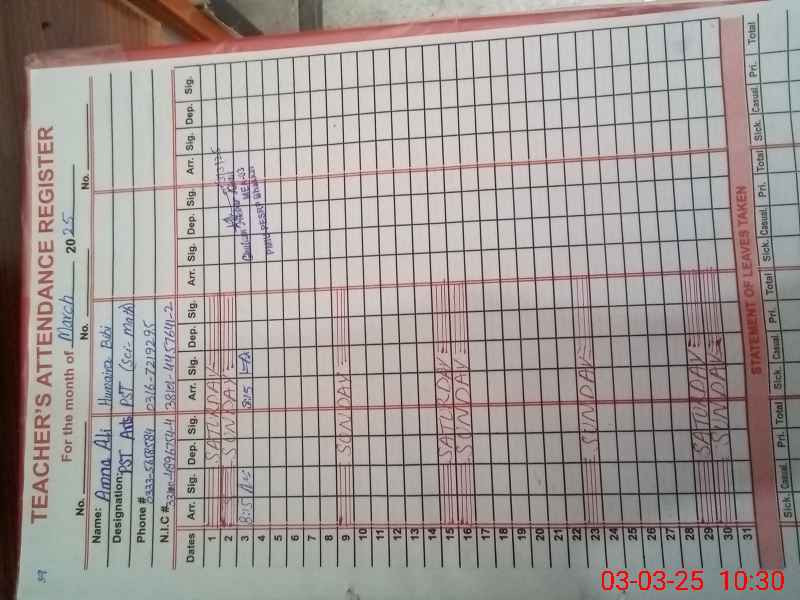 59
TEACHER'S ATTENDANCE REGISTER
For the month of March 2025
No. No. No.
Name: Amna Ali Humaira Bibi
Designation: PST Arts PST (Sci-Math)
Phone # 0333-5658584 0316-7219295
N.I.C # 38101-4457641-2
Dates Arr. Sig. Dep. Sig. Arr. Sig. Dep. Sig. Arr. Sig. Dep. Sig. Arr. Sig. Dep. Sig.
1 SATURDAY
2 SUNDAY
3 8:15 8:15
4
5
6
7
8
9 SUNDAY
10
11
12
13
14
15 SATURDAY
16 SUNDAY
17
18
19
20
21
22
23 SUNDAY
24
25
26
27
28
29 SATURDAY
30 SUNDAY
31
STATEMENT OF LEAVES TAKEN
Sick. Casual. Pri. Total Sick. Casual. Pri. Total Sick. Casual. Pri. Total Sick. Casual. Pri. Total
03-03-25 10:30